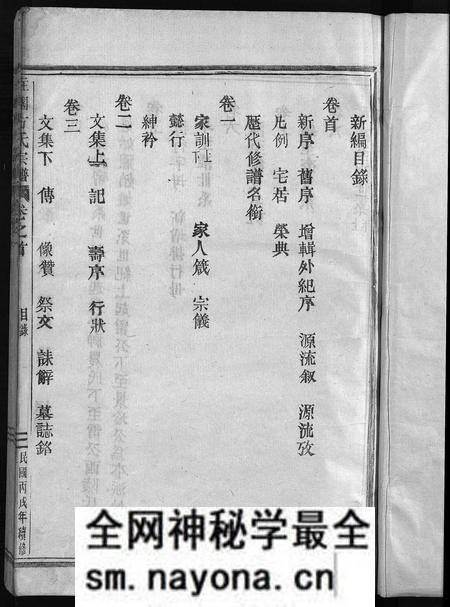 新編目錄
卷首
新序 舊序 增輯外紀序 源流叙 源流攷
凡例 宅居 榮典
歷代修譜名銜
卷一
家訓 家人箴 宗儀
懿行
紳衿
卷二
文集上 記 壽序 行狀
卷三
文集下 傳 像贊 祭文 誄辭 墓誌銘
氏宗譜 卷之首 目錄 民國丙戌年續修
全网神秘学最全
sm.nayona.cn